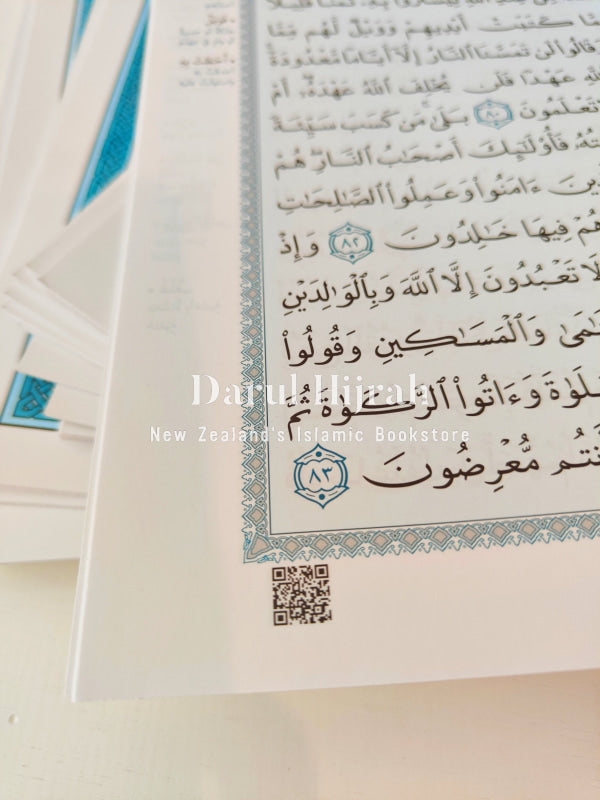 كَتَبَتْ أَيْدِيهِمْ وَوَيْلٌ لَّهُم مِّمَّا
وَقَالُواْ لَن تَمَسَّنَا ٱلنَّارُ إِلَّآ أَيَّامًا مَّعْدُودَةً
ٱللَّهِ عَهْدًا فَلَن يُخْلِفَ ٱللَّهُ عَهْدَهُۥٓۖ أَمْ
تَعْلَمُونَ ٨٠ بَلَىٰۚ مَن كَسَبَ سَيِّئَةً
فَأُوْلَـٰٓئِكَ أَصْحَـٰبُ ٱلنَّارِۖ هُمْ
ءَامَنُواْ وَعَمِلُواْ ٱلصَّـٰلِحَـٰتِ
هُمْ فِيهَا خَـٰلِدُونَ ٨٢ وَإِذْ
لَا تَعْبُدُونَ إِلَّا ٱللَّهَ وَبِٱلْوَٰلِدَيْنِ
وَٱلْمَسَـٰكِينِ وَقُولُواْ
وَءَاتُواْ ٱلزَّكَوٰةَ ثُمَّ
مُّعْرِضُونَ ٨٣
Darul Hijrah
New Zealand's Islamic Bookstore